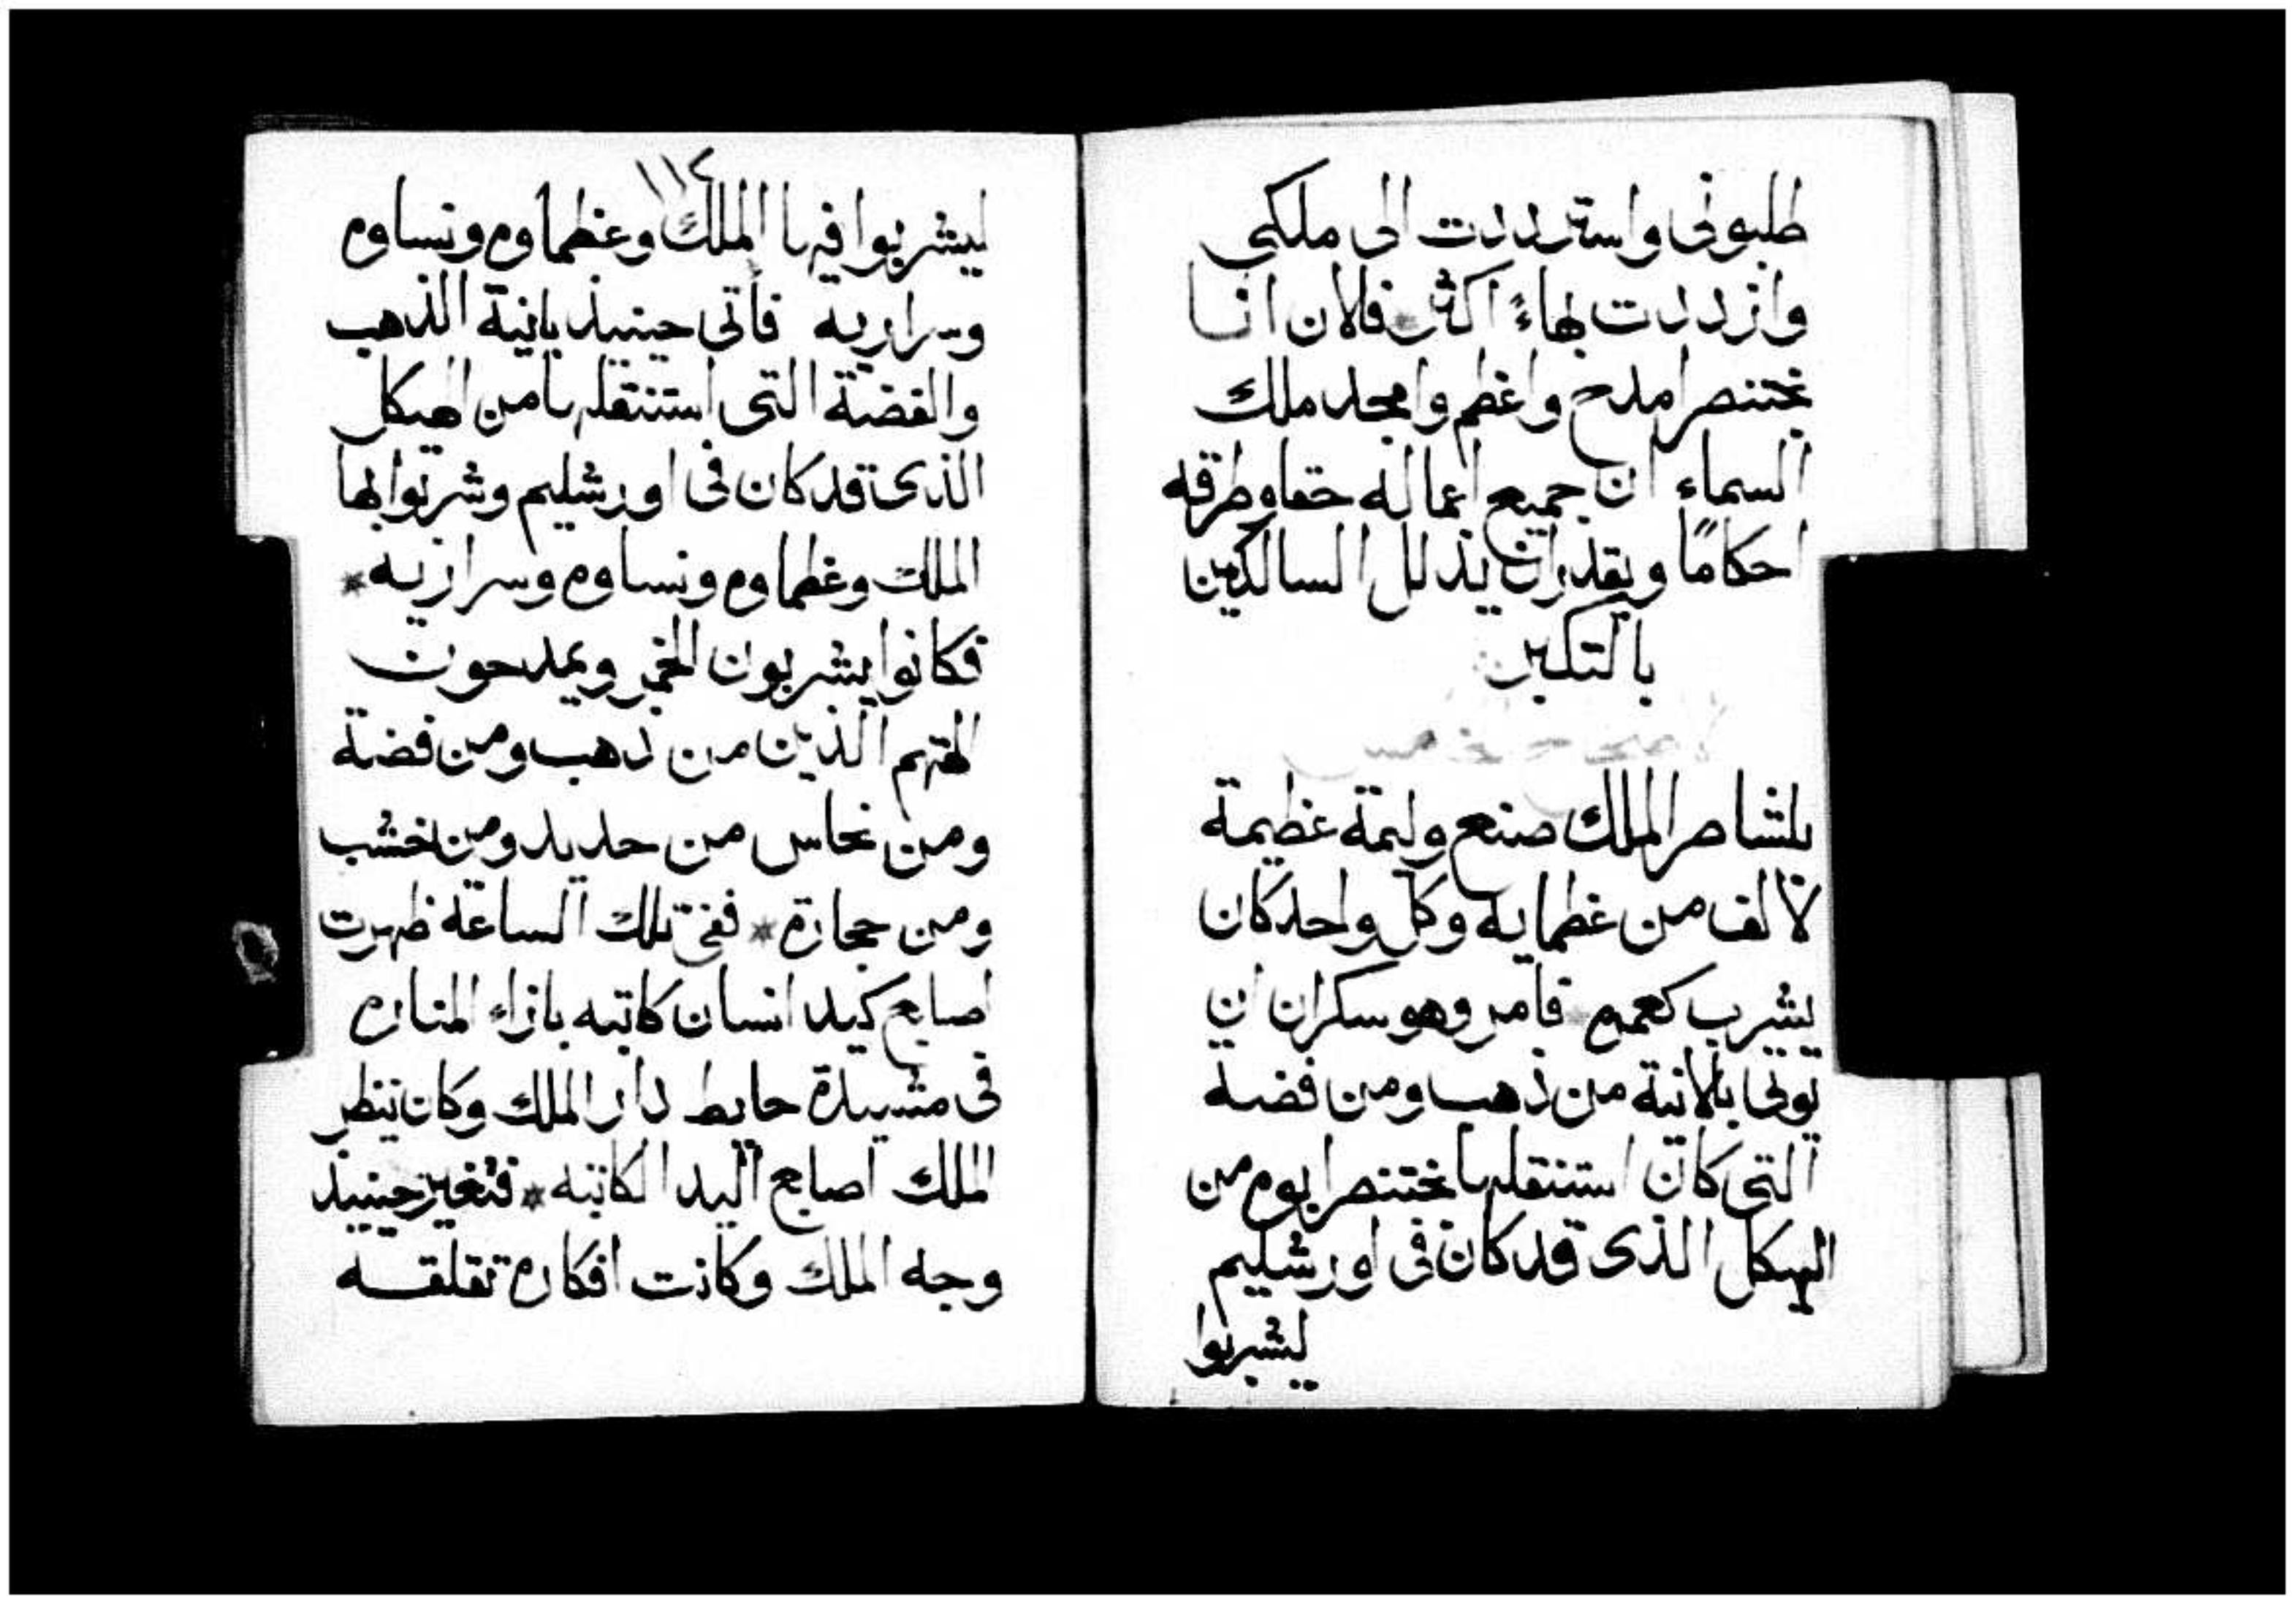 طلبونى واسترددت الى ملكى
وازددت بهاءً اكثر * فالان انا
بختنصر امدح واعظم وامجد ملك
السماء ان جميع اعماله حقا وطرقه
احكامًا ويقدر ان يذلل السالكين
بالتكبر
الاصحاح الخامس
بلشاصر الملك صنع وليمة عظيمة
لالف من عظمايه وكل واحد كان
يشرب كعمره * فامر وهو سكران ان
يوتى بالانية من ذهب ومن فضة
التى كان استنقلها بختنصر ابوه من
الهيكل الذى قد كان فى اورشليم
ليشربوا
١١٢
ليشربوا فيها الملك وعظماوه ونساوه
وسراريه فأتى حينيذ بانية الذهب
والفضة التى استنقلها من الهيكل
الذى قد كان فى اورشليم وشربوا بها
الملك وعظماوه ونساوه وسراريه *
فكانوا يشربون الخمر ويمدحون
الهتهم الذين من ذهب ومن فضة
ومن نحاس من حديد ومن خشب
ومن حجارة * ففى تلك الساعة ظهرت
اصابع كيد انسان كاتبه بازاء المناره
فى مشيدة حايط دار الملك وكان ينظر
الملك اصابع اليد الكاتبه * فتغير حينيذ
وجه الملك وكانت افكاره تقلقه